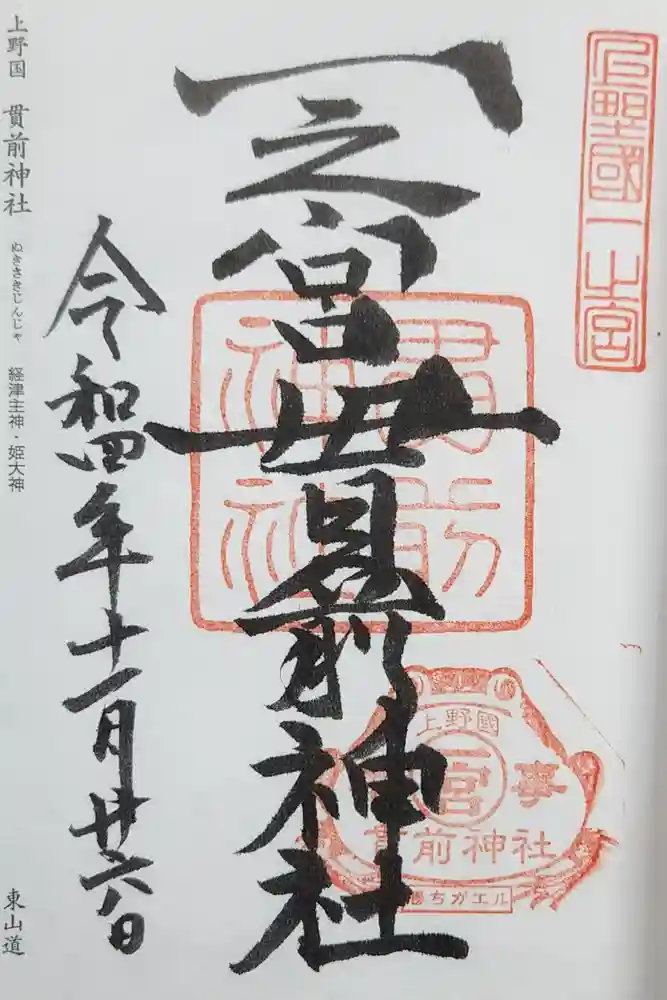 上野國一之宮
一之宮貫前神社
貫前神社
上野國
一宮
貫前神社
勝ちガエル
令和四年十一月廿六日
上野国 貫前神社 ぬきさきじんじゃ 経津主神・姫大神
東山道